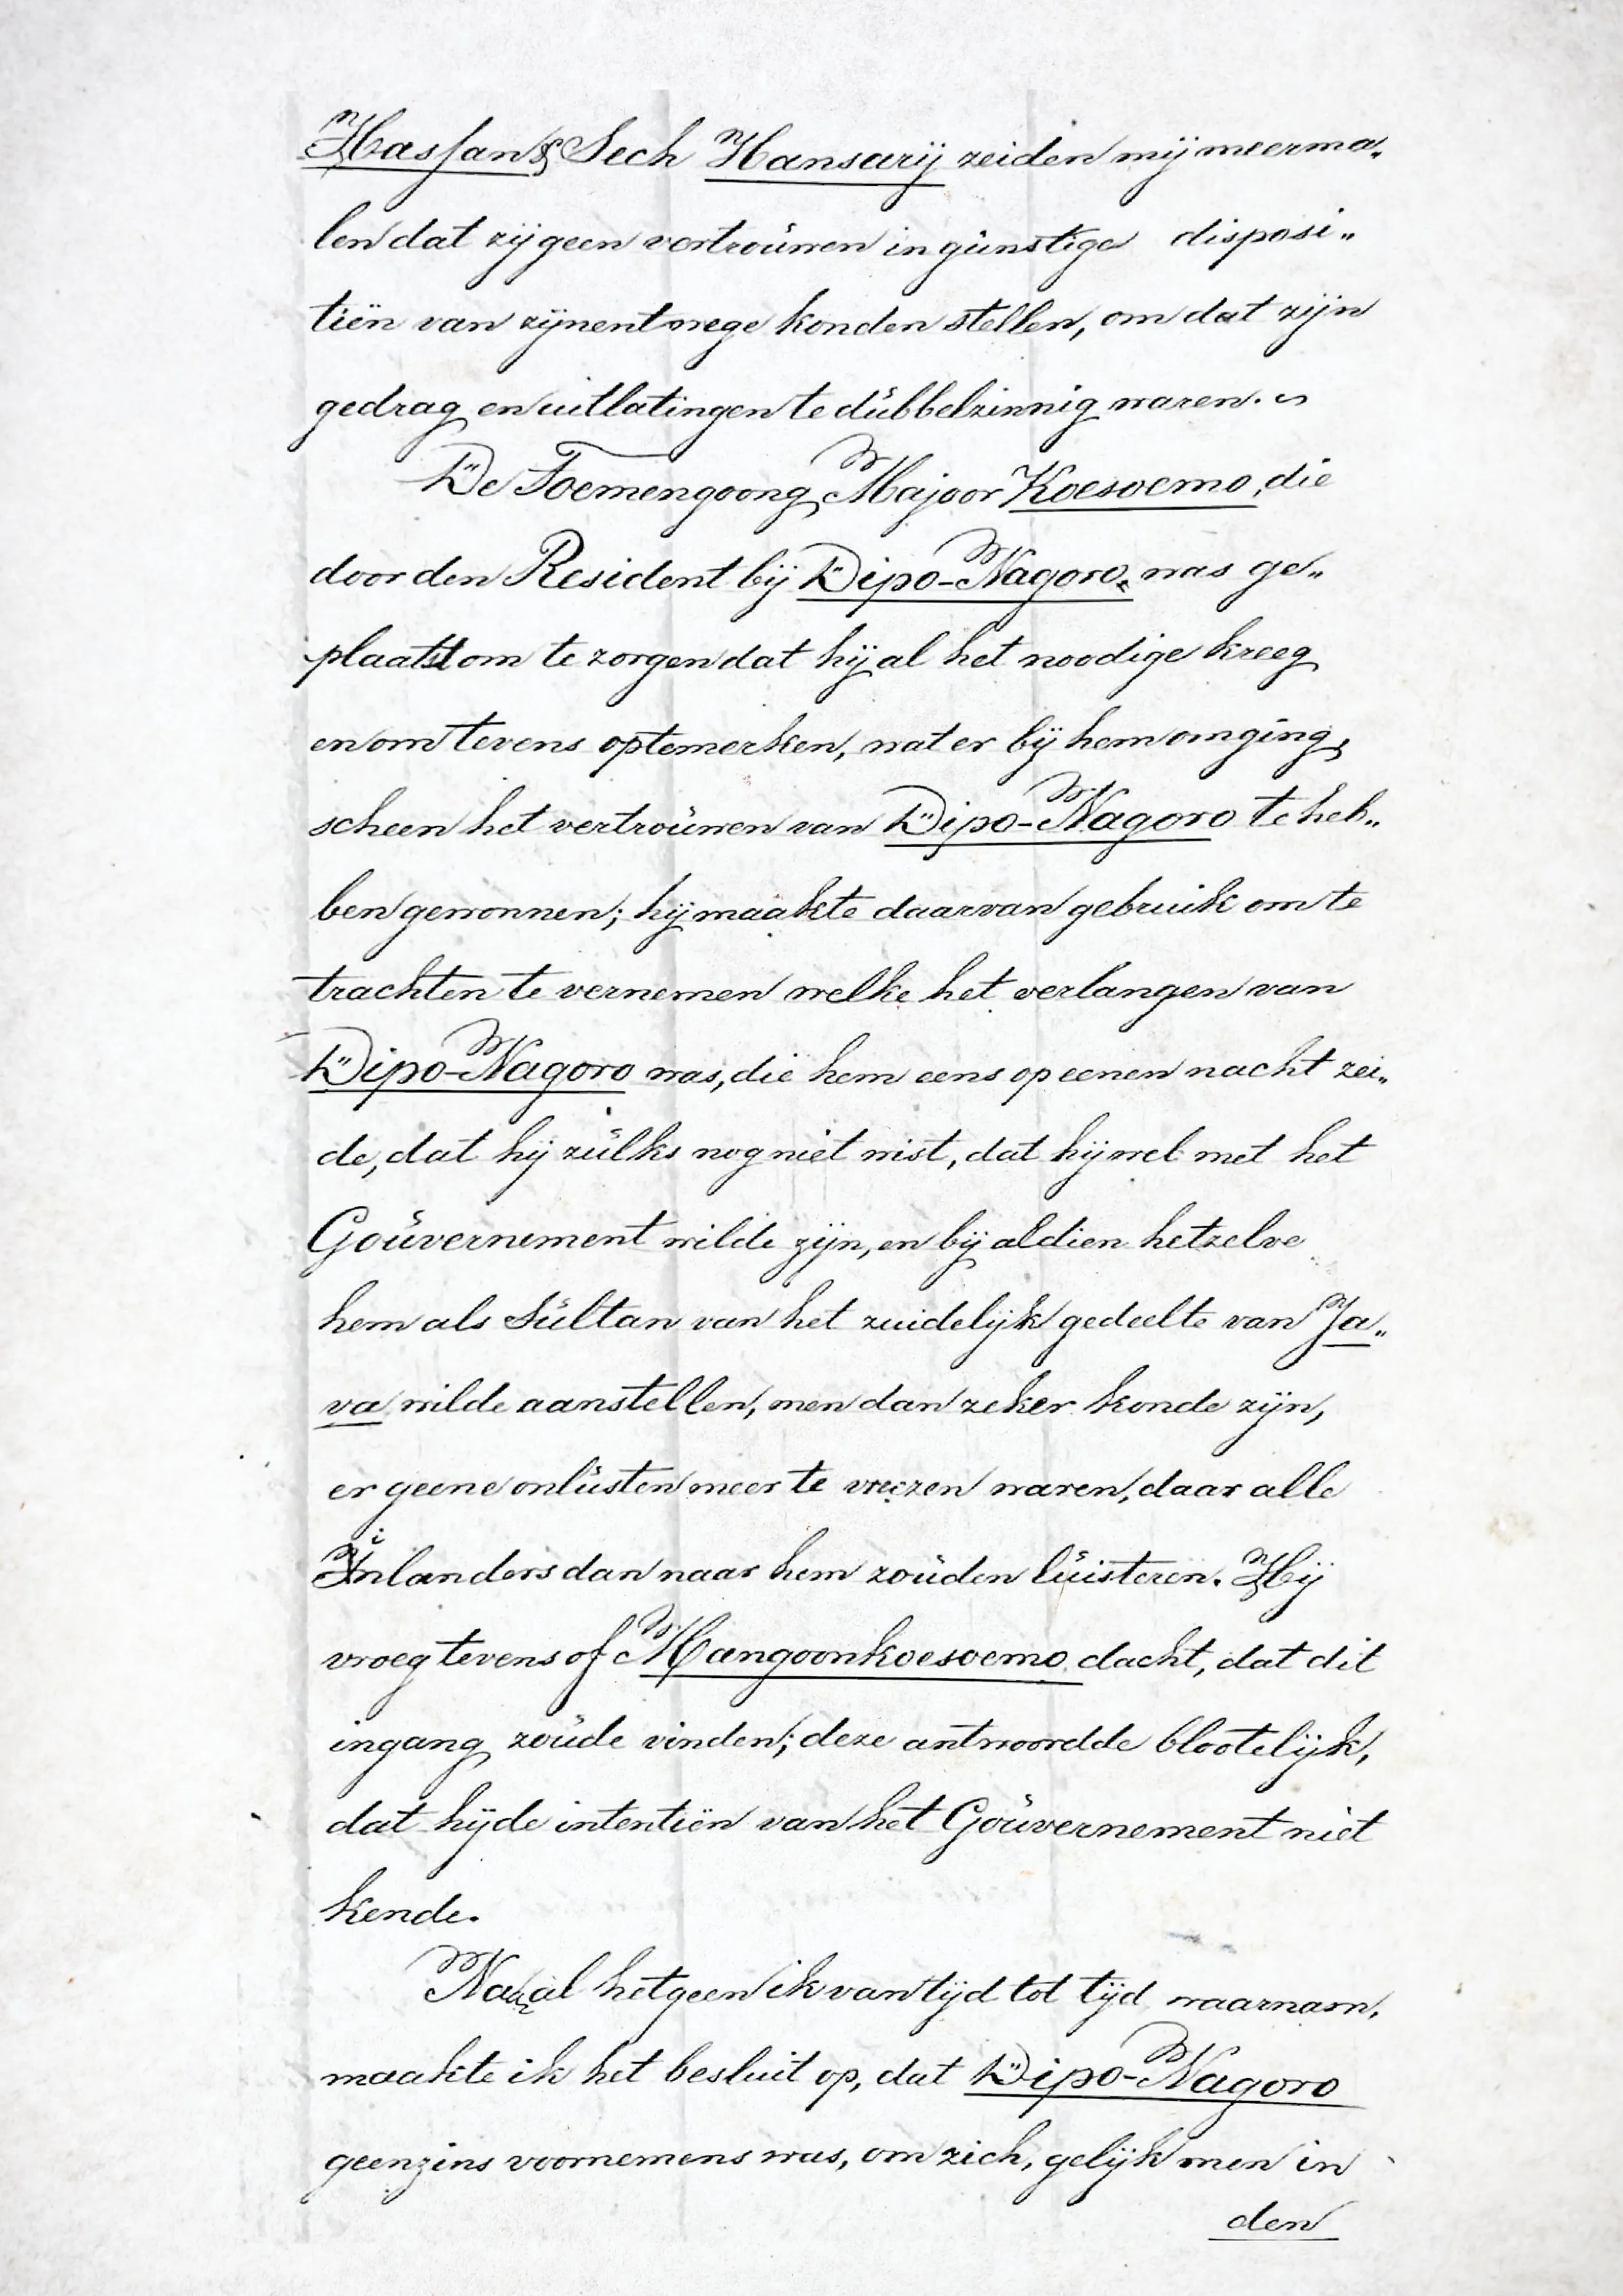 Hassan & Sech Hansarij zeiden mij meerma„
len dat zij geen vertroúwen in gúnstige disposi„
tiën van zijnentwege konden stellen, om dat zijn
gedrag en uitlatingen te dúbbelzinnig waren.
De Toemengoong Majoor Koesoemo, die
door den Resident bij Dipo-Nagoro, was ge„
plaatst om te zorgen dat hij al het noodige kreeg
en om tevens optemerken, wat er bij hem omging,
scheen het vertroúwen van Dipo-Nagoro te heb„
ben gewonnen; hij maakte daarvan gebruik om te
trachten te vernemen welke het verlangen van
Dipo-Nagoro was, die hem eens op eenen nacht zei„
de, dat hij zúlks nog niet wist, dat hij wel met het
Goúvernement wilde zijn, en bij aldien hetzelve
hem als Súltan van het zuidelijk gedeelte van Ja„
va wilde aanstellen, men dan zeker konde zijn,
er geene onlústen meer te vreezen waren, daar alle
Inlanders dan naar hem zoúden lúisteren. Hij
vroeg tevens of Mangoonkoesoemo dacht, dat dit
ingang zoúde vinden; deze antwoordde blootelijk,
dat hij de intentiën van het Goúvernement niet
kende.
Na al hetgeen ik van tijd tot tijd waarnam,
maakte ik het besluit op, dat Dipo-Nagoro
geenzins voornemens was, om zich, gelijk men in
den